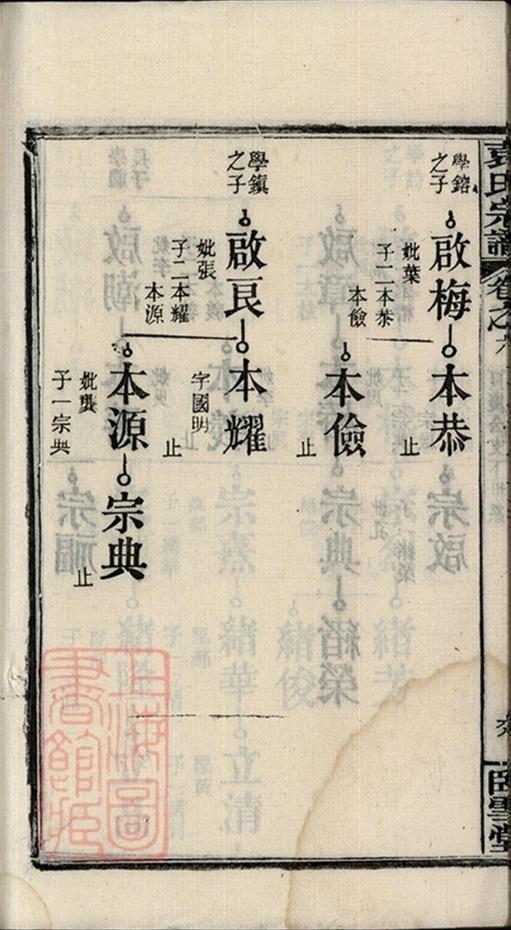 氏宗譜
卷之六
臥雲堂
學鎔
之子
啟梅
本恭
止
妣葉
子二本恭
本儉
本儉
止
學鎮
之子
啟良
本耀
妣張
子二本耀
本源
字國明
止
本源
宗典
妣龔
子一宗典
止
上海圖
書館藏